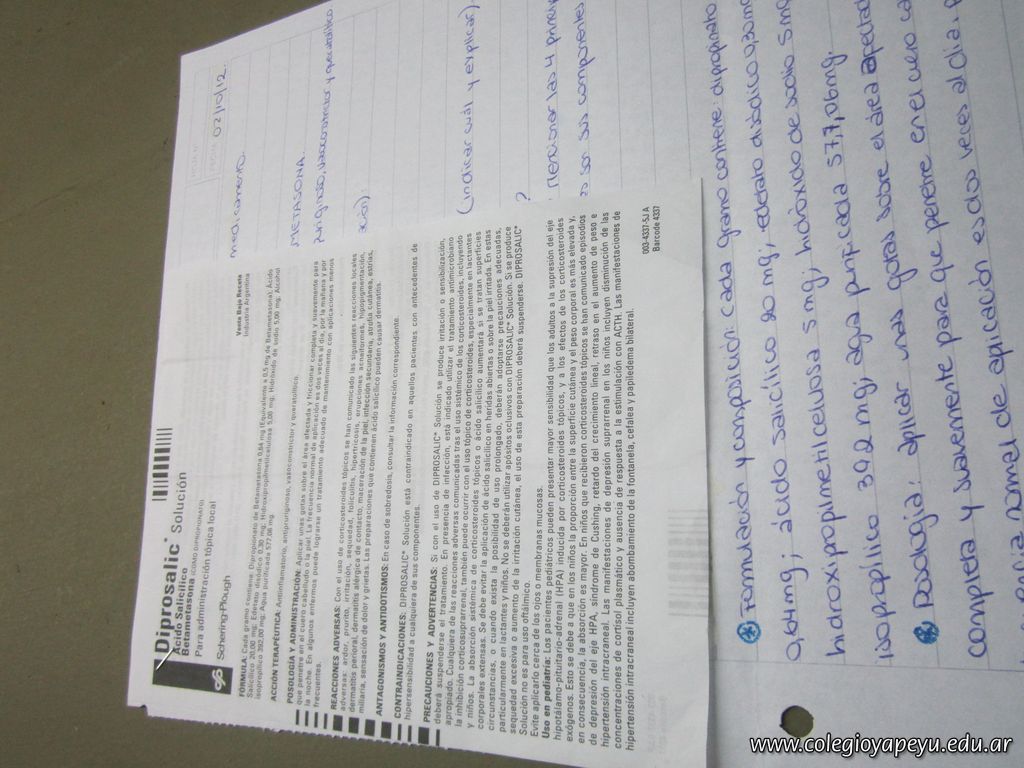 Diprosalic* Solución
Acido Salicílico
Betametasona (COMO DIPROPIONATO)
Para administración tópica local
Schering-Plough
Venta Bajo Receta
Industria Argentina
FÓRMULA: Cada gramo contiene: Dipropionato de Betametasona 0,64 mg (Equivalente a 0,5 mg de Betametasona); Ácido
Salicílico 20,00 mg; Edetato disódico 0,30 mg; Hidroxipropilmetilcelulosa 5,00 mg; Hidróxido de sodio, 5,00 mg; Alcohol
isopropílico 392,00 mg; Agua purificada 577,06 mg
ACCIÓN TERAPÉUTICA: Antiinflamatorio, antipruriginoso, vasoconstrictor y queratolítico.
POSOLOGÍA Y ADMINISTRACIÓN: Aplicar unas gotas sobre el área afectada y friccionar completa y suavemente para
que penetre en el cuero cabelludo o la piel. La frecuencia normal de aplicación es dos veces al día, por la mañana y por
la noche. En algunos enfermos puede lograrse un tratamiento adecuado de mantenimiento con aplicaciones menos
frecuentes.
REACCIONES ADVERSAS: Con el uso de corticosteroides tópicos se han comunicado las siguientes reacciones locales
adversas: ardor, prurito, irritación, sequedad, foliculitis, hipertricosis, erupciones acneiformes, hipopigmentación,
dermatitis perioral, dermatitis alérgica de contacto, maceración de la piel, infección secundaria, atrofia cutánea, estrías,
miliaria, sensación de dolor y grietas. Las preparaciones que contienen ácido salicílico pueden causar dermatitis.
ANTAGONISMOS Y ANTIDOTISMOS: En caso de sobredosis, consultar la información correspondiente.
CONTRAINDICACIONES: DIPROSALIC* Solución está contraindicado en aquellos pacientes con antecedentes de
hipersensibilidad a cualquiera de sus componentes.
PRECAUCIONES Y ADVERTENCIAS: Si con el uso de DIPROSALIC* Solución se produce irritación o sensibilización,
deberá suspenderse el tratamiento. En presencia de infección, está indicado utilizar el tratamiento antimicrobiano
apropiado. Cualquiera de las reacciones adversas comunicadas tras el uso sistémico de los corticosteroides, incluyendo
la inhibición corticosuprarrenal, también puede ocurrir con el uso tópico de corticosteroides, especialmente en lactantes
y niños. La absorción sistémica de corticosteroides tópicos o ácido salicílico aumentará si se tratan superficies
corporales extensas. Se debe evitar la aplicación de ácido salicílico en heridas abiertas o sobre la piel irritada. En estas
circunstancias, o cuando exista la posibilidad de uso prolongado, deberán adoptarse precauciones adecuadas,
particularmente en lactantes y niños. No se deberán utilizar apósitos oclusivos con DIPROSALIC* Solución. Si se produce
sequedad excesiva o aumento de la irritación cutánea, el uso de esta preparación deberá suspenderse. DIPROSALIC*
Solución no es para uso oftálmico.
Evite aplicarlo cerca de los ojos o membranas mucosas.
Uso en pediatría: Los pacientes pediátricos pueden presentar mayor sensibilidad que los adultos a la supresión del eje
hipotálamo-pituitario-adrenal (HPA) inducida por corticosteroides tópicos, y a los efectos de los corticosteroides
exógenos. Esto se debe a que en los niños la proporción entre la superficie cutánea y el peso corporal es más elevada y,
en consecuencia, la absorción es mayor. En niños que recibieron corticosteroides tópicos se han comunicado episodios
de depresión del eje HPA, síndrome de Cushing, retardo del crecimiento lineal, retraso en el aumento de peso e
hipertensión intracraneal. Las manifestaciones de depresión suprarrenal en los niños incluyen disminución de las
concentraciones de cortisol plasmático y ausencia de respuesta a la estimulación con ACTH. Las manifestaciones de
hipertensión intracraneal incluyen abombamiento de la fontanela, cefalea y papiledema bilateral.
003-4337-SJ A
Barcode 4337
02/10/12
medicamento.
METASONA
pruriginoso, vasoconstrictor y queratolítico
(indicar cuál y explicar)
?
Mencionar las 4 princip
son sus componentes
Formulación y composición: Cada gramo contiene: dipropinato
0,64 mg; ácido Salicílico 20 mg; edetato disódico 0,30 m
hidroxipropilmetilcelulosa 5 mg; hidróxido de sodio 5 mg
isopropílico 392 mg; agua purificada 577,06 mg.
Posología: aplicar unas gotas sobre el área afectad
completa y suavemente para que penetre en el cuero ca
normal de aplicación es dos veces al día, p
www.colegioyapeyu.edu.ar